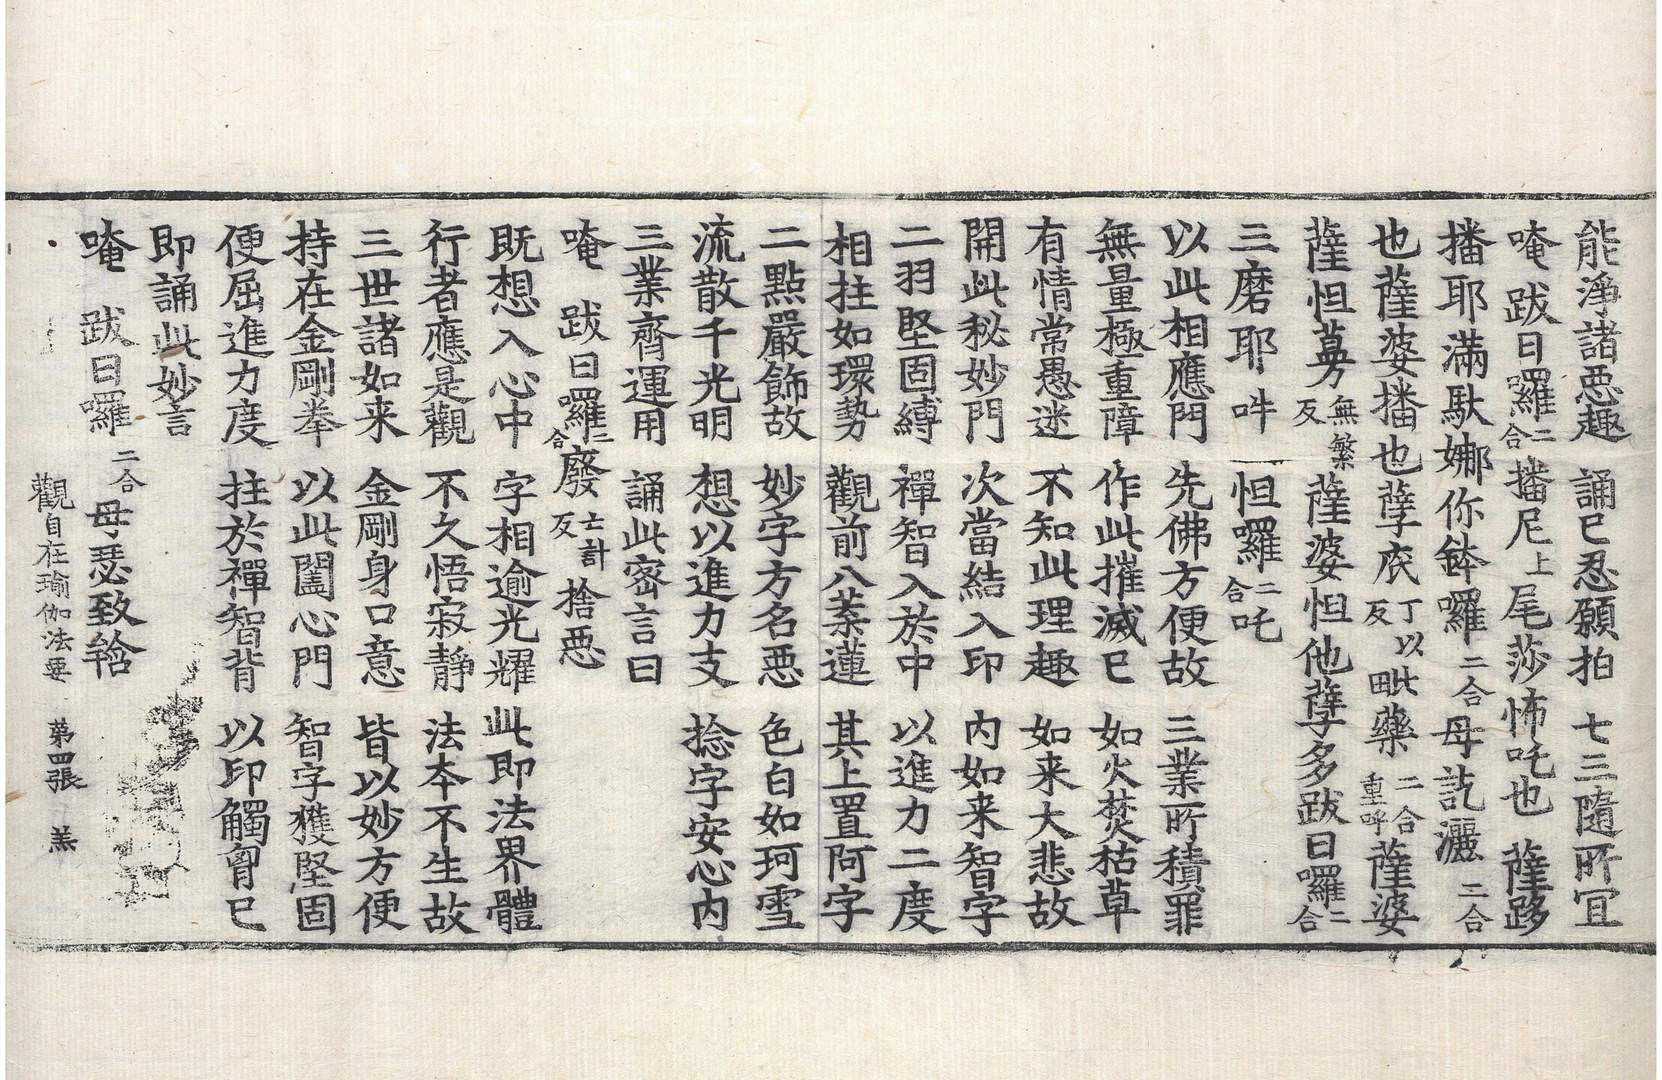 能淨諸惡趣 誦已忍願拍 七三隨所冝
唵跋日囉二合播尼上尾莎怖吒也薩跢
播耶滿馱娜你鉢囉二合母訖灑二合
也薩婆播也孽底丁以反毗藥二合重呼薩婆
薩怛蒡無繁反薩婆怛他孽多跋日囉二合
三磨耶吽 怛囉二合吒
以此相應門 先佛方便故 三業所積罪
無量極重障 作此摧滅已 如火焚枯草
有情常愚迷 不知此理趣 如来大悲故
開此秘妙門 次當結入印 内如来智字
二羽堅固縛 禪智入於中 以進力二度
相拄如環勢 觀前八葉蓮 其上置阿字
二點嚴飾故 妙字方名惡 色白如珂雪
流散千光明 想以進力支 捻字安心内
三業齊運用 誦此密言曰
唵 跋日囉二合廢亡計反捨惡
既想入心中 字相逾光耀 此即法界體
行者應是觀 不久悟寂静 法夲不生故
三世諸如来 金剛身口意 皆以妙方便
持在金剛拳 以此闔心門 智字獲堅固
便屈進力度 拄於禪智背 以印觸胷已
即誦此妙言
唵 跋日囉二合母瑟致𤚥
觀自在瑜伽法要 第四張 羔